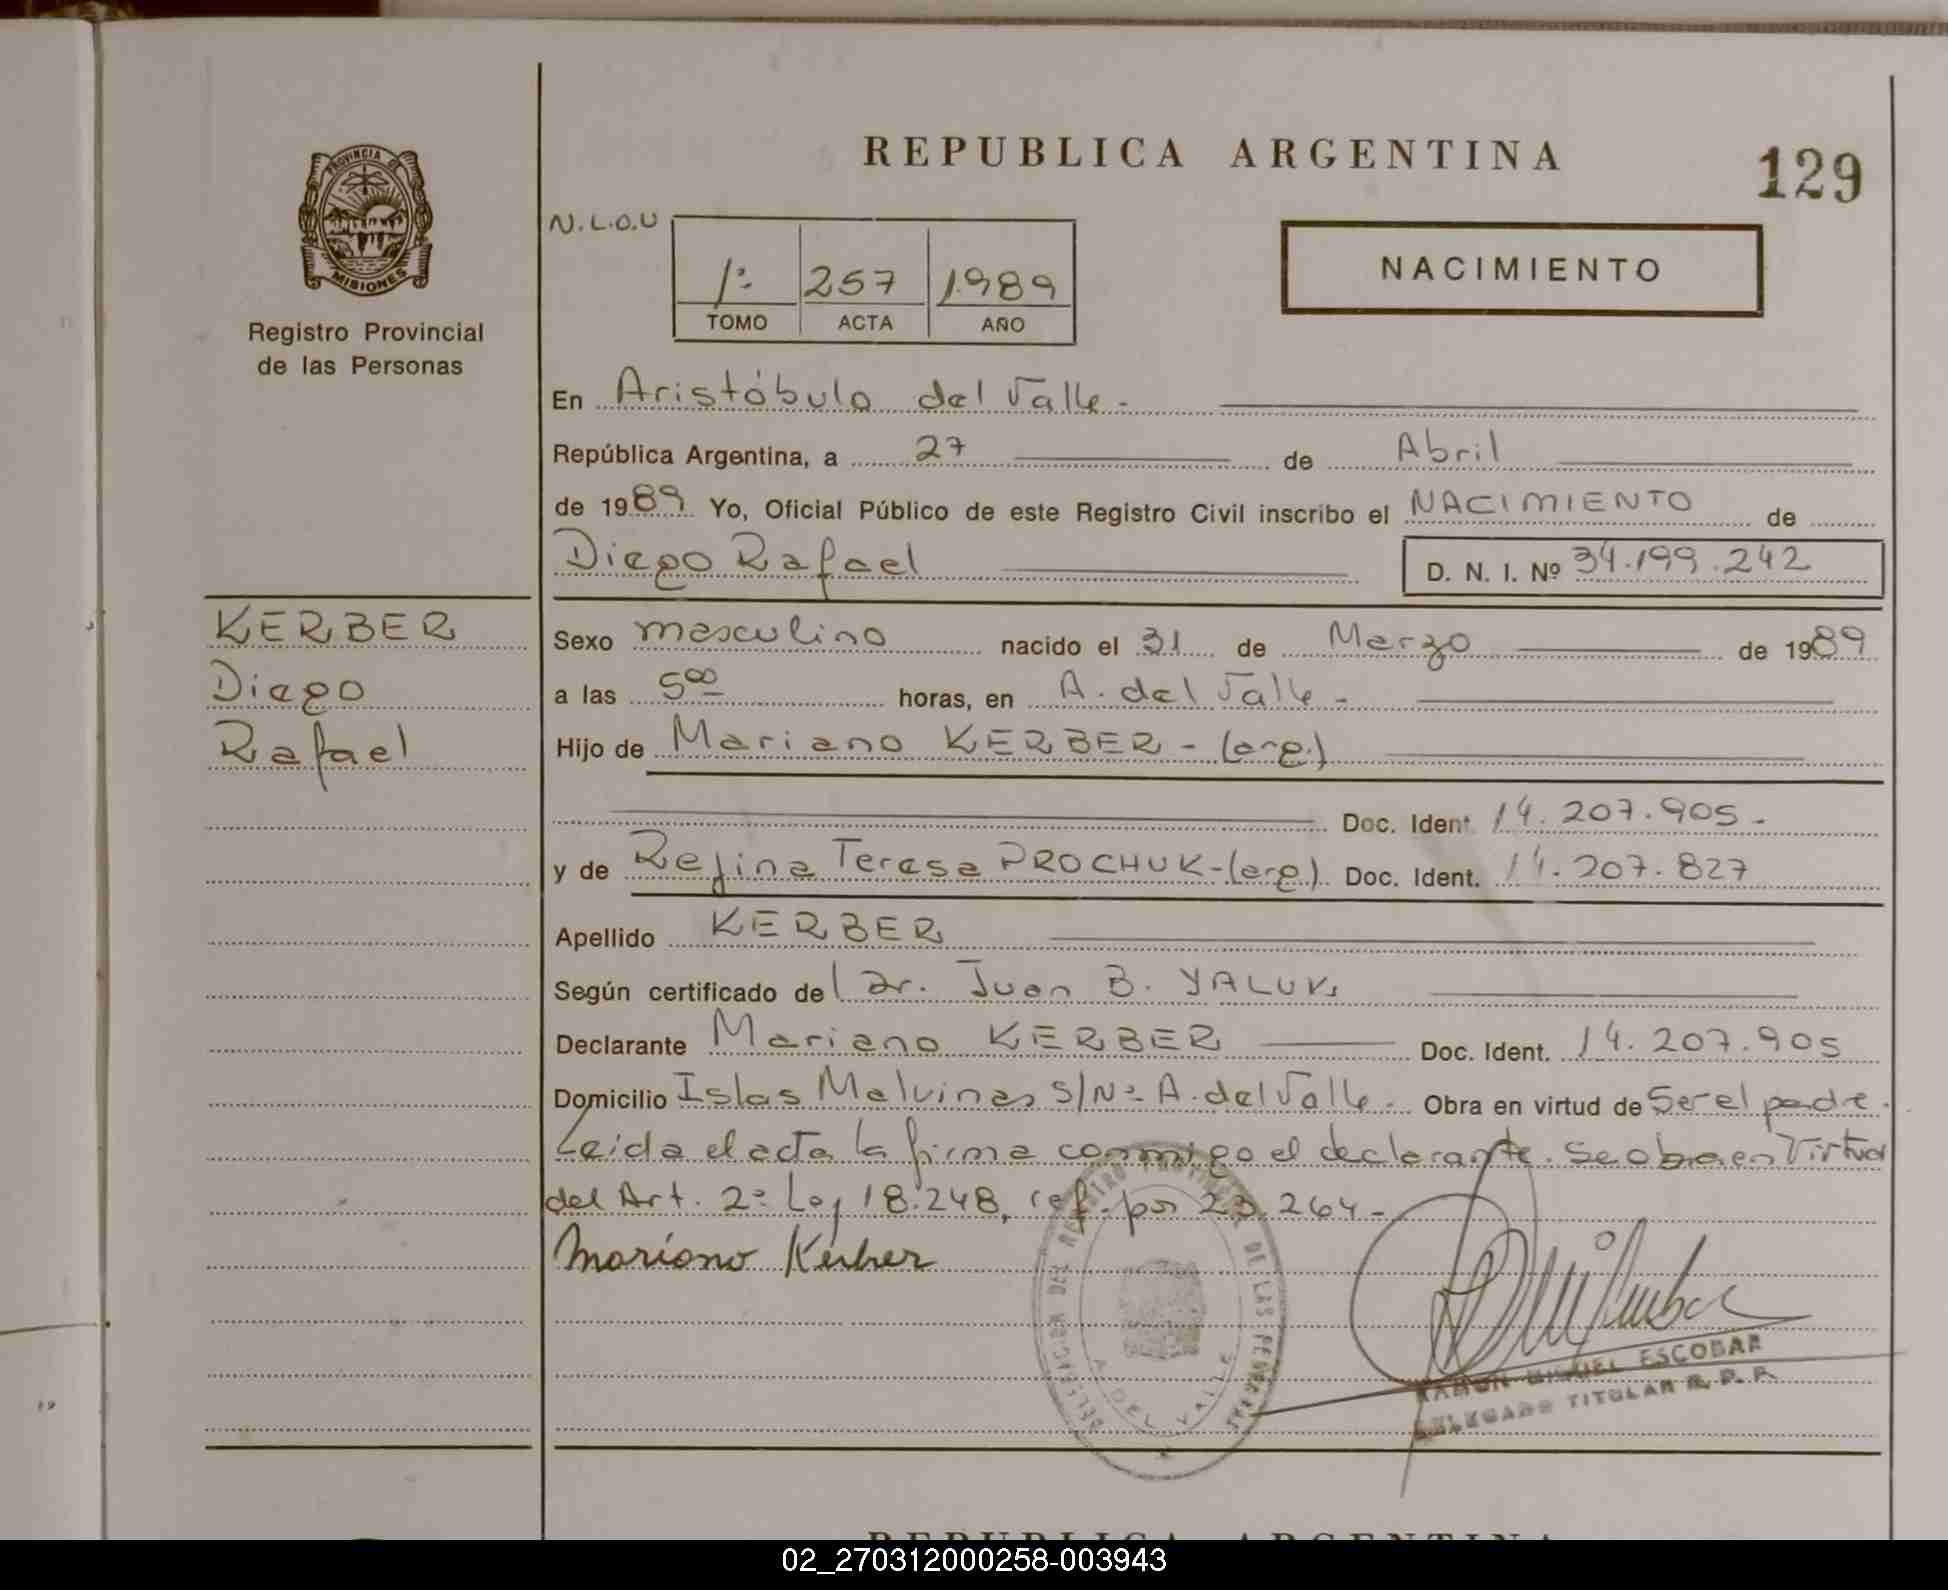 REPUBLICA ARGENTINA
129
PROVINCIA DE
MISIONES
Registro Provincial
de las Personas
N.L.O.U
1º 257 1989
TOMO ACTA AÑO
NACIMIENTO
En Aristóbulo del Valle.-
República Argentina, a 27 de Abril
de 1989 Yo, Oficial Público de este Registro Civil inscribo el NACIMIENTO de
Diego Rafael D. N. I. Nº 34.199.242
KERBER
Diego
Rafael
Sexo masculino nacido el 31 de Marzo de 1989
a las 5 00 horas, en A. del Valle -
Hijo de Mariano KERBER - (arg.)
Doc. Ident. 14.207.905-
y de Regina Teresa PROCHUK-(arg). Doc. Ident. 14.207.827
Apellido KERBER
Según certificado del Dr. Juan B. YALUK
Declarante Mariano KERBER Doc. Ident. 14.207.905
Domicilio Islas Malvinas S/Nº A. del Valle. Obra en virtud de Ser el padre.
Leida el acta la firma conmigo el declarante. Se obra en Virtud
del Art. 2º Ley 18.248, ref. por 23.264-
Mariano Kerber
DELEGACION DEL REGISTRO PROVINCIAL DE LAS PERSONAS
A. DEL VALLE
RAMON MIGUEL ESCOBAR
DELEGADO TITULAR R. P. P.
REPUBLICA ARGENTINA
02_270312000258-003943